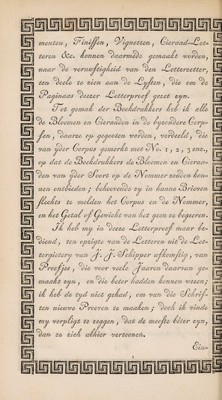 menten, Finissen, Vignetten, Cieraad-Let-
teren &c. konnen daarmede gemaakt worden,
naar de vernuftigheid van den Letterzetter,
ten deele te zien aan de Lysten, die om de
Paginaas deezer Letterproef gezet zyn.
Tot gemak der Boekdrukkers heb ik alle
de Bloemen en Cieraaden in de byzondere Corp-
sen, daarze op gegooten worden, verdeeld, die
van yder Corpus gemerkt met No. 1, 2, 3 enz.,
op dat de Boekdrukkers de Bloemen en Cieraa-
den van yder Soort op de Nommer zouden kon-
nen ontbieden; behoevende zy in hunne Brieven
slechts te melden het Corpus en de Nommer,
en het Getal of Gewicht van het geen ze begeeren.
Ik heb my in deeze Letterproef maar be-
diend, ten opzigte van de Letteren uit de Let-
tergietery van J. J. Schipper afkomstig, van
Proefjes, die voor veele Jaaren daarvan ge-
maakt zyn, en die beter hadden konnen weezen;
ik heb de tyd niet gehad, om van die Schrif-
ten nieuwe Proeven te maaken; doch ik vinde
my verpligt te zeggen, dat de meeste beter zyn,
dan ze zich alhier vertoonen.
Ein-